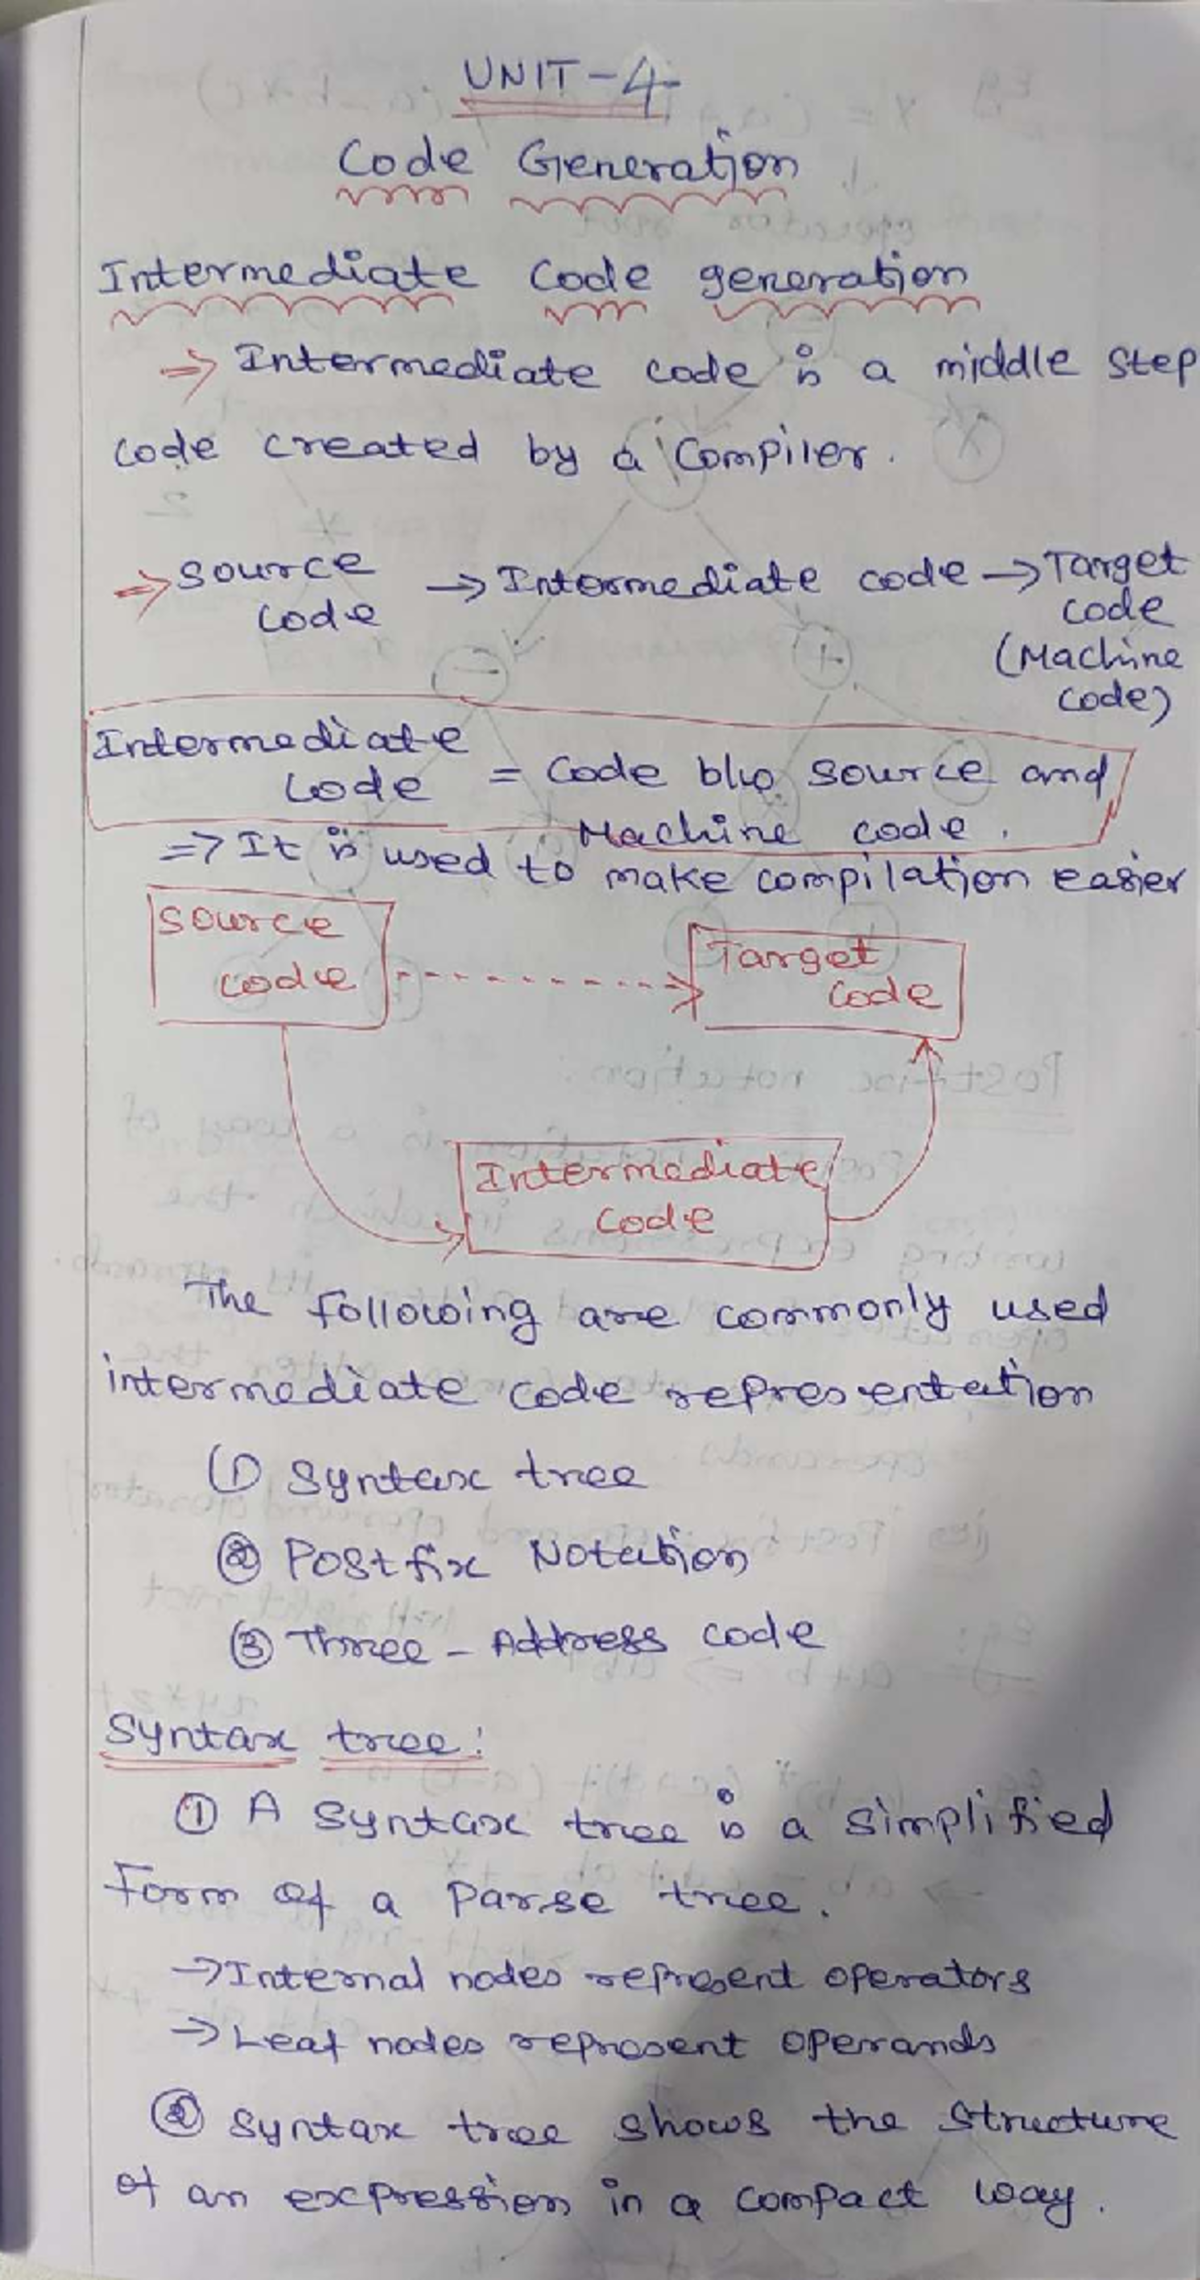 UNIT-4
Code Generation
Intermediate Code generation
⇒ Intermediate code is a middle step
code created by a compiler.
⇒ Source code → Intermediate code → Target code (Machine code)
Intermediate code = Code b/w source and Machine code.
⇒ It is used to make compilation easier
Source code
Target code
Intermediate code
The following are commonly used
intermediate code representation
(1) Syntax tree
(2) Postfix Notation
(3) Three - Address code
Syntax tree:
(1) A Syntax tree is a simplified
Form of a Parse tree.
→ Internal nodes represent operators
→ Leaf nodes represent operands
(2) Syntax tree shows the structure
of an expression in a compact way.